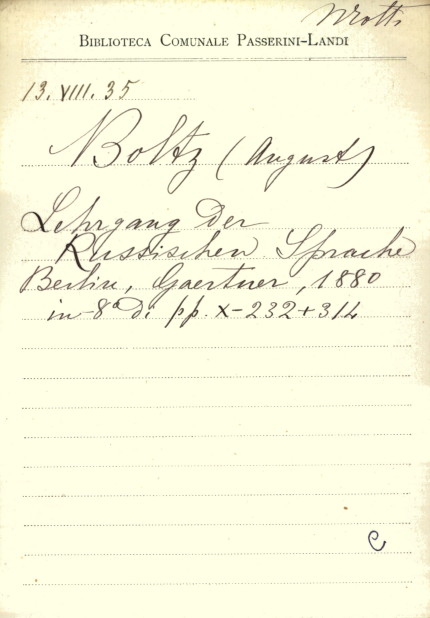 BIBLIOTECA COMUNALE PASSERINI-LANDI
13. VIII. 35
Boltz (August)
Lehrgang der
Russischen Sprache
Berlin, Gaertner, 1880
in-8º di pp. X-232+314
C